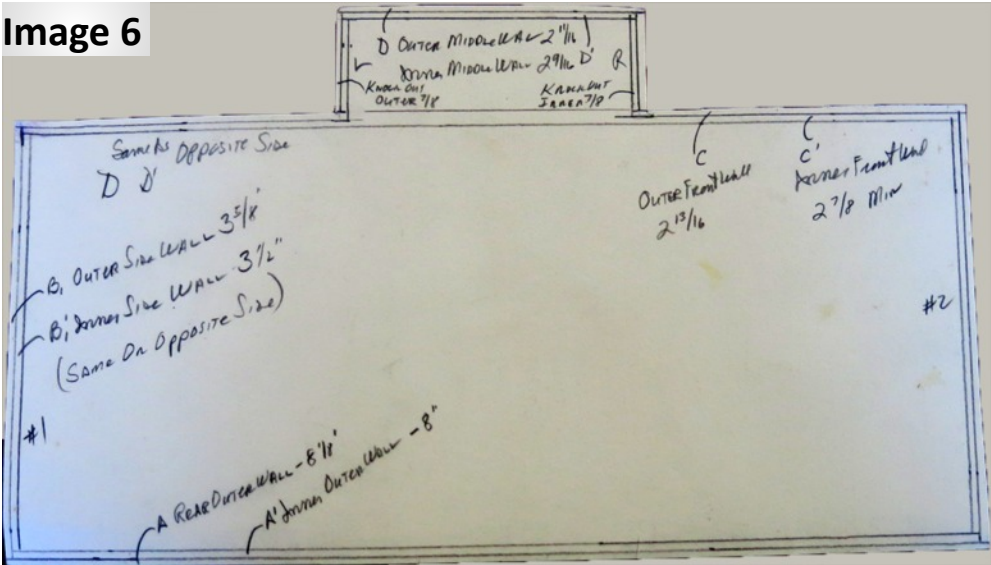 Image 6
D OUTER MIDDLE WALL 2 11/16
L Inner MIDDLE WALL 2 9/16 D' R
KNOCK OUT
OUTER 7/8
KNOCKOUT
INNER 7/8
Same As OPPOSITE Side
D D'
C
OUTER Front Wall
2 13/16
C'
Inner Front Wall
2 7/8 Min
B, OUTER Side WALL 3 5/8"
B', Inner Side WALL 3 1/2"
(SAME On OPPOSITE Side)
#2
#1
A REAR OUTER WALL - 8 1/8"
A' Inner OUTER WALL - 8"